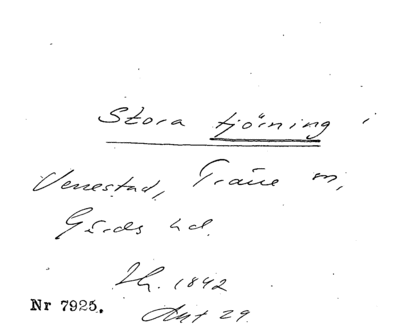 Stora tjörning i
Venestad, Träne m,
Gärds hd.
Lh. 1842
Akt 29.
Nr 7925.